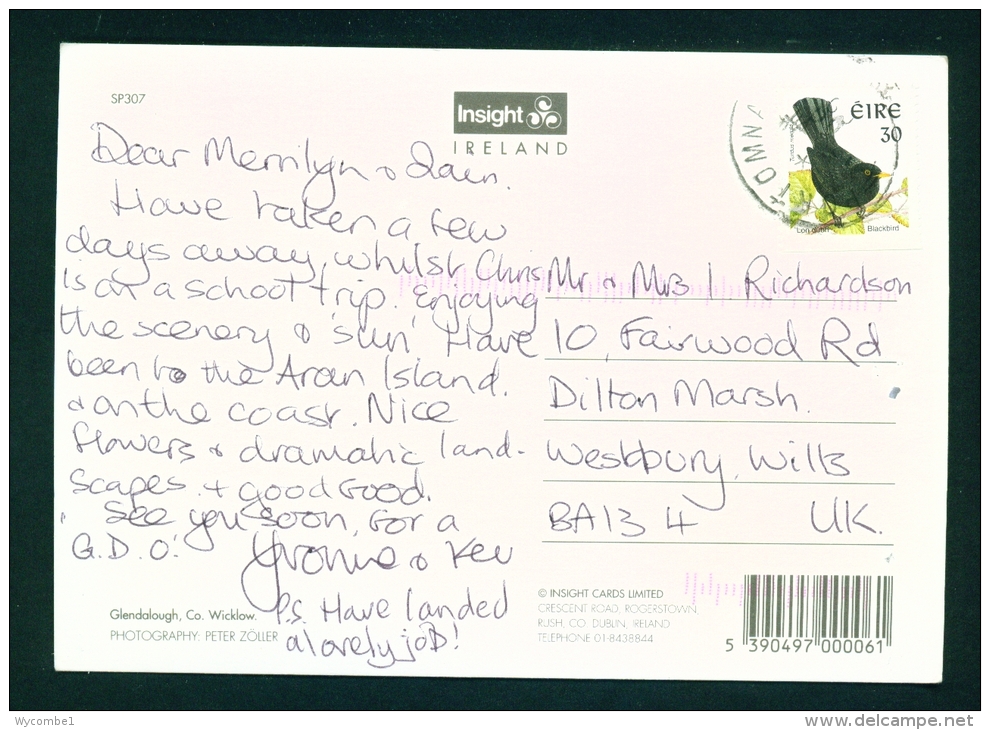 SP307
Insight
IRELAND
ÉIRE
30
Lon dubh
Blackbird
Dear Merrilyn & Iain.
Have taken a few
days away, whilst Chris
is on a school trip. Enjoying
the scenery & 'sun' Have
been to the Aran Island.
& on the coast. Nice
flowers & dramatic land-
scapes. + good food.
See you soon, for a
G.D.O!
Yvonne & Kev
P.S. Have landed
a lovely job!
Mr & Mrs I Richardson
10, Fairwood Rd
Dilton Marsh.
Westbury, Wilts
BA13 4
UK.
Glendalough, Co. Wicklow.
PHOTOGRAPHY: PETER ZÖLLER
© INSIGHT CARDS LIMITED
CRESCENT ROAD, ROGERSTOWN,
RUSH, CO. DUBLIN, IRELAND
TELEPHONE 01-8438844
5 390497 000061
Wycombe1
delcampe.net